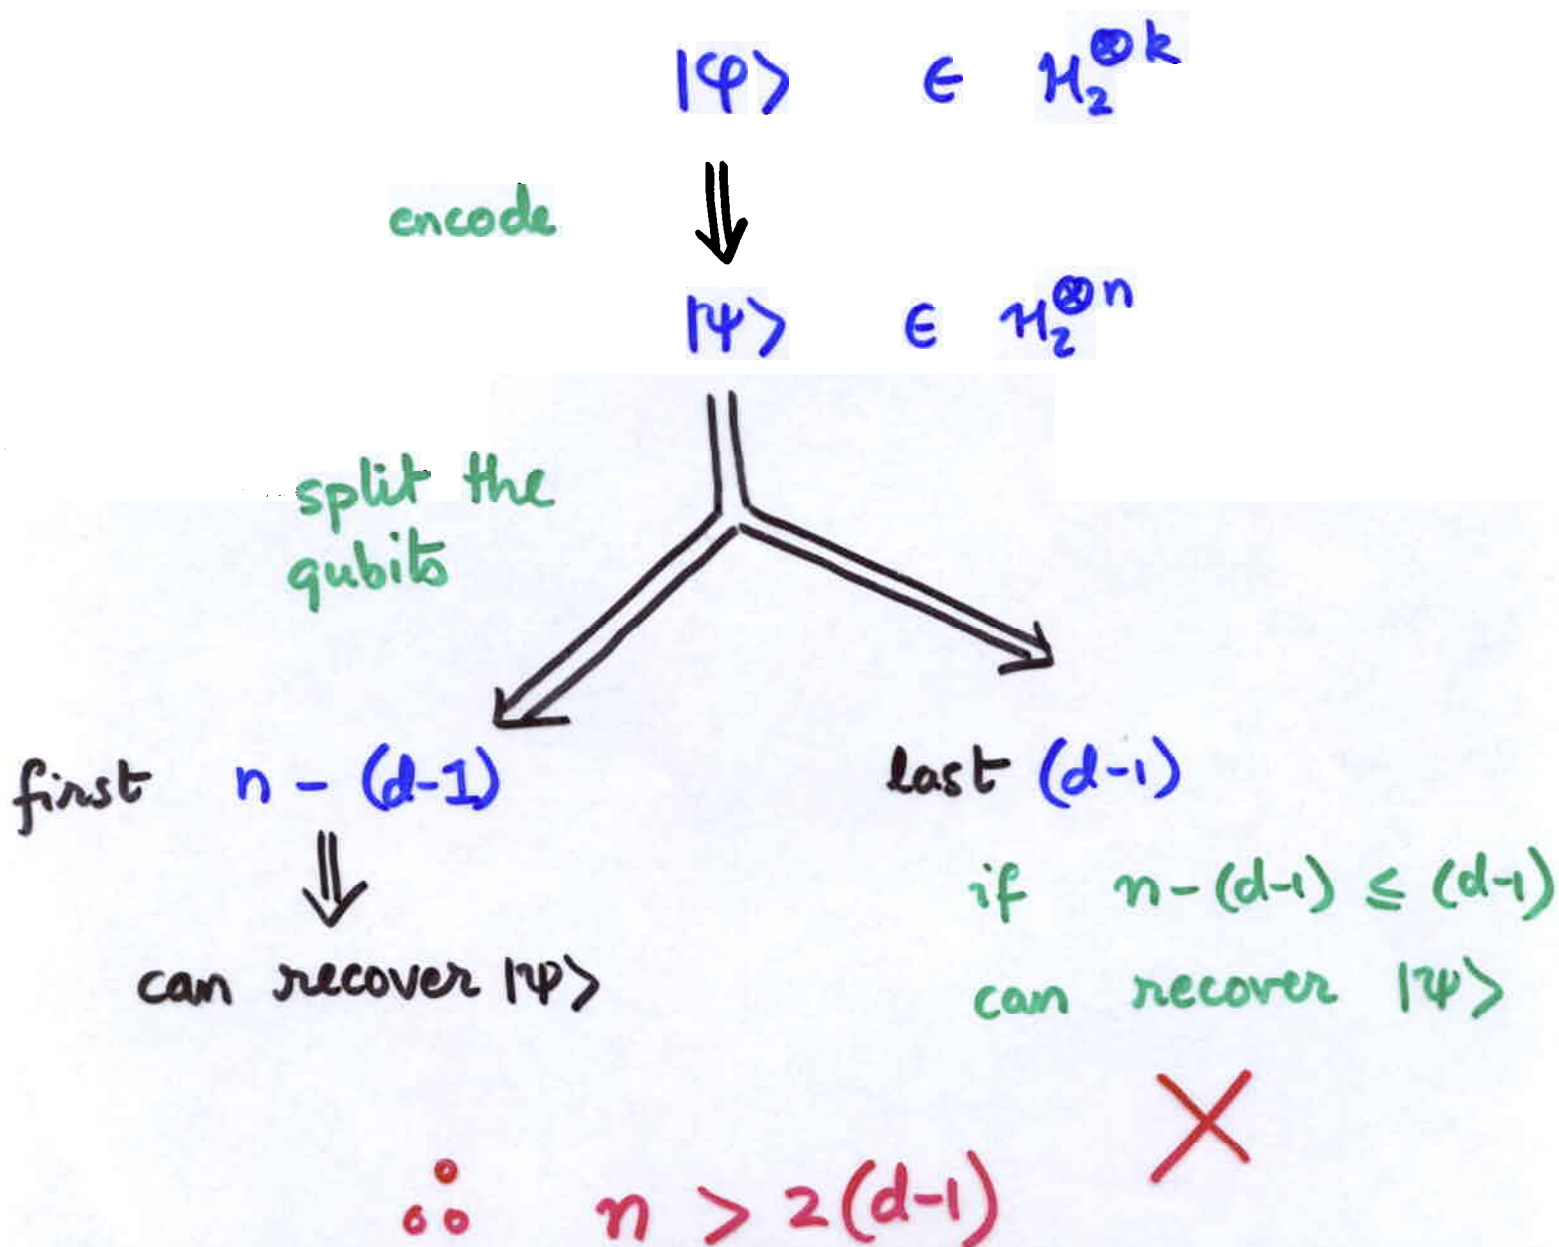 |φ> ∈ H₂^⊗k
encode
|ψ> ∈ H₂^⊗n
split the
qubits
first n - (d-1)
last (d-1)
can recover |ψ>
if n-(d-1) ≤ (d-1)
can recover |ψ>
∴ n > 2(d-1)